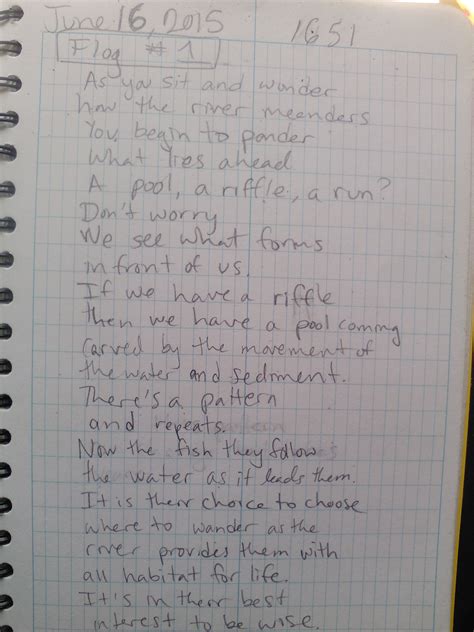 June 16, 2015 1651
Flog #1
As you sit and wonder
how the river meanders
You begin to ponder
What lies ahead
A pool, a riffle, a run?
Don't worry
We see what forms
in front of us.
If we have a riffle
then we have a pool coming
Carved by the movement of
the water and sediment.
There's a pattern
and repeats.
Now the fish they follow
the water as it leads them.
It is their choice to choose
where to wander as the
river provides them with
all habitat for life.
It's in their best
interest to be wise.